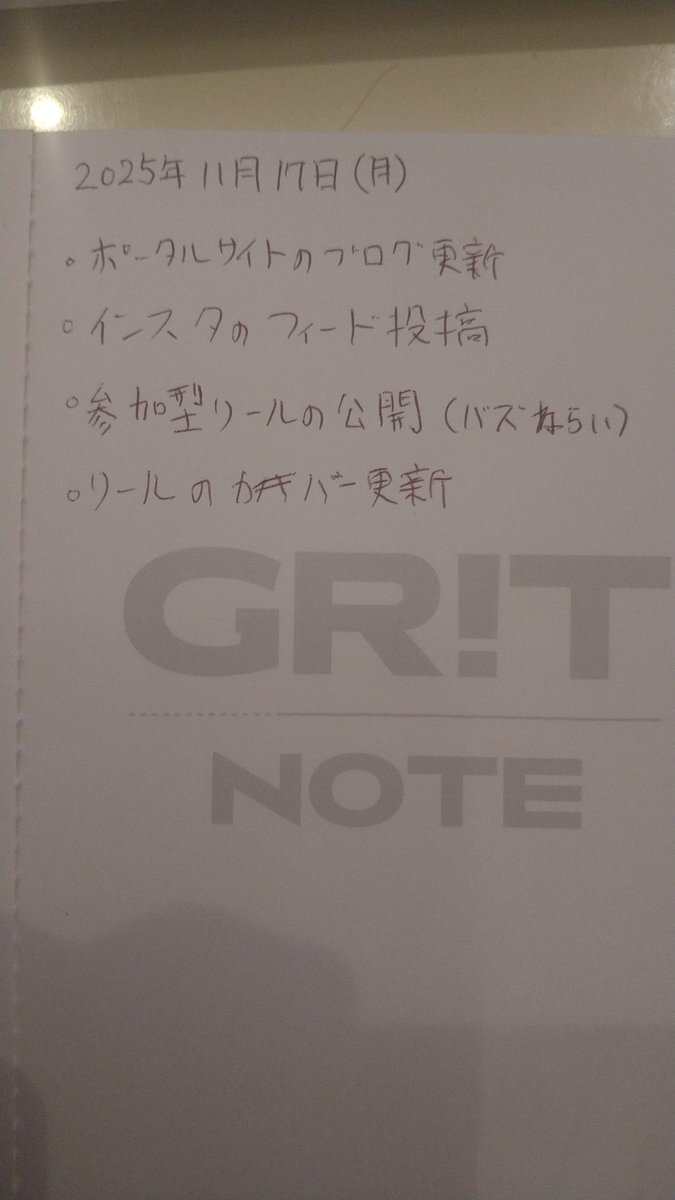 2025年11月17日(月)
○ポータルサイトのブログ更新
○インスタのフィード投稿
○参加型リールの公開(バズねらい)
○リールのカバー更新
GR!T
NOTE